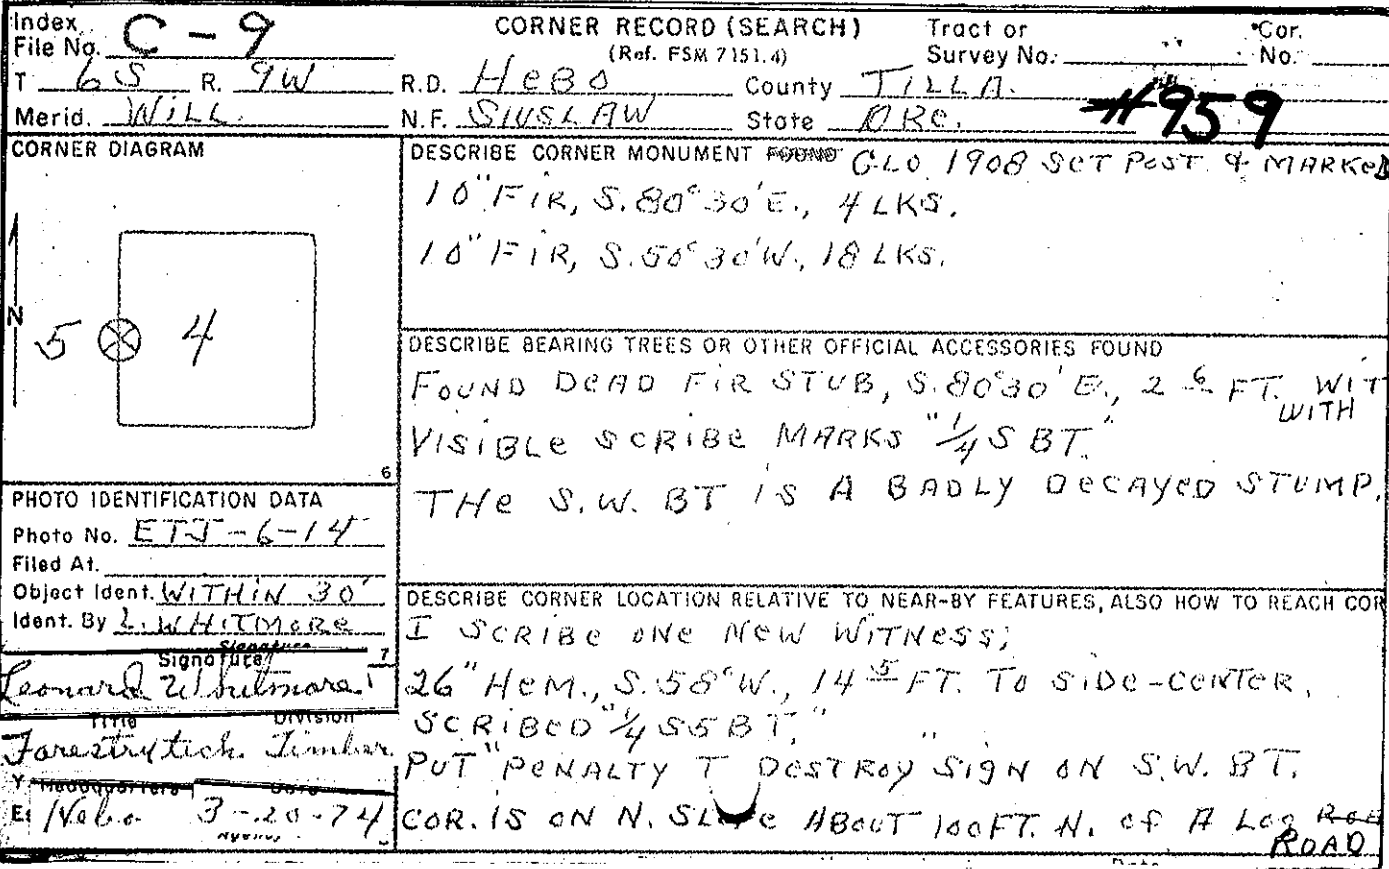 Index File No. C-9 CORNER RECORD (SEARCH) Tract or Survey No. Cor. No.
(Ref. FSM 7151.4)
T 6S R. 9W R.D. HeBO County TILLA.
#959
Merid. WiLL. N.F. SIUSLAW State ORe.
CORNER DIAGRAM
N
5 4
6
DESCRIBE CORNER MONUMENT FOUND GLO 1908 SeT PoST & MARKeD
10" FiR, S.80°30'E., 4 LKS.
10" FiR, S.50°30'W., 18 LKS.
DESCRIBE BEARING TREES OR OTHER OFFICIAL ACCESSORIES FOUND
FOUND DeAD FiR STUB, S.80°30'E., 2 6 FT. WIT
WITH
VISIBLe SCRiBe MARKS "1/4 S BT."
THe S.W. BT iS A BADLY DeCAYeD STUMP.
PHOTO IDENTIFICATION DATA
Photo No. ETJ-6-14
Filed At.
Object Ident. WITHiN 30'
Ident. By L. WHiTMoRe
Signature
Signature 7
Leonard Whitmore
Title Division
Forestry tech. Timber
Headquarters Date
Hebo 3-20-74
DESCRIBE CORNER LOCATION RELATIVE TO NEAR-BY FEATURES, ALSO HOW TO REACH COR
I SCRIBe ONe NeW WiTNeSS;
26" HeM., S.58°W., 14 5 FT. To SiDe-CeNTeR.
SCRiBeD "1/4 S5 BT."
PUT "PeNALTY T DeSTRoy SiGN ON S.W. BT.
COR. iS ON N. SLoPe ABouT 100 FT. N. oF A LoG RoA
ROAD